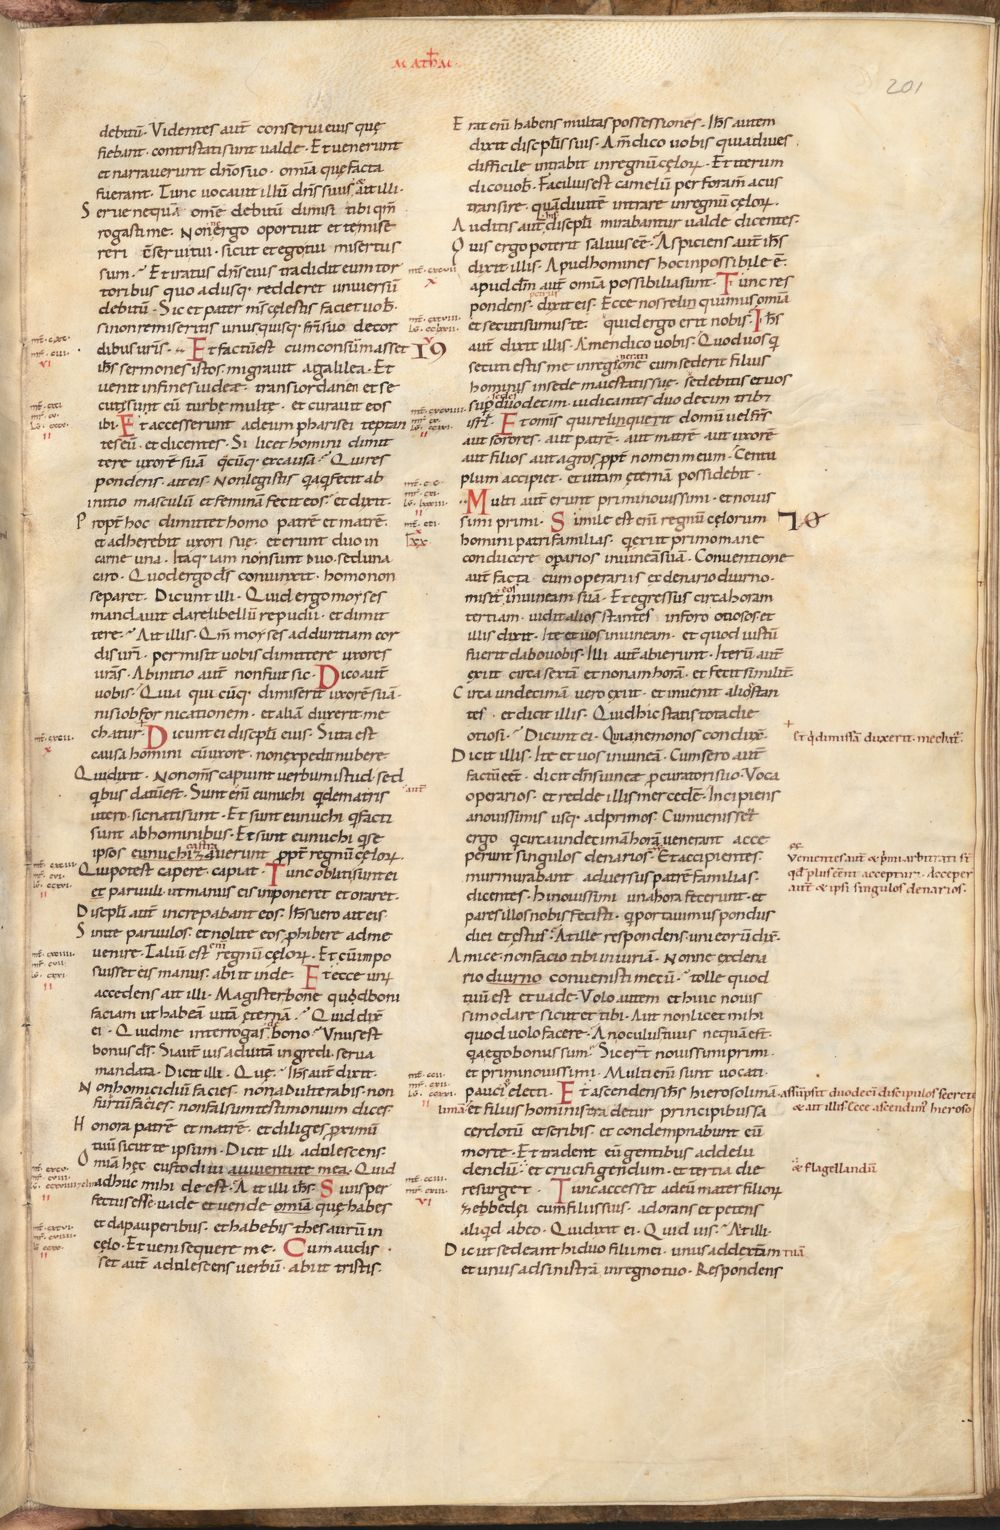 MATHM
201
debitū· Videntes aut̄ conserui eius quę
fiebant· contristati sunt ualde· Et uenerunt
et narrauerunt dn̄o suo· om̄ia quę facta
fuerant· Tunc uocauit illū dn̄s suus· & ait illi·
Serue nequā om̄e debitū dimisi tibi qm̄
rogasti me· Nonne ergo oportuit et te mise
reri c̄serui tui· sicut et ego tui misertus
sum· Et iratus dn̄s eius tradidit eum tor
toribus quo adusq; redderet uniuersū
debitū· Sic et pater ms̄ cęlestis faciet uob̄·
si non remiseritis unusquisq; fr̄i suo de cor
dibus ur̄is· Et factū est cum consūmasset
ih̄s sermones istos· migrauit a galilea· Et
uenit in fines iudeę· trans iordanen et se
cutę sunt eū turbę multę· et curauit eos
ibi· Et accesserunt ad eum pharisei teptan
tes eū· et dicentes· Si licet homini dimit
tere uxorē suā q̄cūq; ex causa· Qui res
pondens· ait eis· Non legistis q̄a q̄ fecit ab
initio masculū et feminā fecit eos· et dixit·
Propt̄ hoc dimittet homo patrē et matrē·
et adherebit uxori suę· et erunt duo in
carne una· Itaq; iam non sunt duo· sed una
caro· Quod ergo ds̄ coniunxit· homo non
separet· Dicunt illi· Quid ergo moyses
mandauit dare libellū repudii· et dimit
tere· Ait illis· Qm̄ moyses ad duritiam cor
dis uri· permisit uobis dimittere uxores
uras· Ab initio aut̄ non fuit sic· Dico aut̄
uobis· Quia quicūq; dimiserit uxorē suā·
nisi ob fornicationem· et aliā duxerit me
chatur· Dicunt ei discipl̄i eius· Si ita est
causa homini cū uxore· non expedit nubere·
Qui dixit· Non om̄s capiunt uerbum istud· sed
q̄bus datū est· Sunt em̄ eunuchi q̄ de matris
utero sic nati sunt· Et sunt eunuchi q̄ facti
sunt ab hominibus· Et sunt eunuchi q̄ se
ipsos castrauerunt ppt̄ regnū cęlor·
Qui potest capere· capiat· Tunc oblati sunt ei
et paruuli ut manus eis inponeret et oraret·
Discipl̄i aut̄ increpabant eos· Ih̄s uero ait eis·
Sinite paruulos· et nolite eos phibere ad me
uenire· Taliū est em̄ regnū cęlor· Et cū impo
suisset eis manus· abiit inde· Et ecce un;
accedens ait illi· Magister bone quid boni
faciam ut habeā uitā ęternā· Qui dix̄
ei· Quid me interrogas de bono· Unus est
bonus ds̄· Si aut̄ uis ad uitā ingredi· serua
mandata· Dicit illi· Quę· Ih̄s aut̄ dixit·
Non homicidiū facies· non adulterabis· non
furtū facies· non falsum testimonium dices·
Honora patrē et matrē· et diliges p̄ximū
tuū sicut te ipsum· Dicit illi adolescens·
Om̄ia hęc custodiui a iuuentute mea· Quid
adhuc mihi deest· Ait illi ih̄s· Si uis per
fectus esse· uade et uende om̄ia quę habes
et da pauperibus· et habebis thesaurū in
cęlo· Et ueni sequere me· Cum audis
set aut̄ adolescens uerbū· abiit tristis·
19
Erat em̄ habens multas possessiones· Ih̄s autem
dixit discpl̄is suis· Am̄ dico uobis quia diues
difficile intrabit in regnū cęlor· Et iterum
dico uob̄· Facilius est camelū per foram̄ acus
transire· quā diuitē intrare in regnū cęlor·
Auditis aut̄ his discpl̄i mirabantur ualde dicentes·
Quis ergo poterit saluus ee̅· Aspiciens aut̄ ih̄s
dixit illis· Apud homines hoc inpossibile ē·
apud dm̄ aut̄ om̄ia possibilia sunt· Tunc res
pondens petrus dixit ei· Ecce nos relinquimus om̄ia
et secuti sumus te· quid ergo erit nobis· Ih̄s
aut̄ dixit illis· Amen dico uobis· Quod uos q̄
secuti estis me in regeneratione cum sederit filius
hominis in sede maiestatis suę· sedebitis et uos
sup̄ sedes duodecim· iudicantes duodecim trib;
isrl̄· Et om̄is qui relinquerit domū uel fr̄s
aut sorores· aut patrē· aut matrē aut uxorē
aut filios aut agros ppt̄ nomen meum· Centu
plum accipiet· et uitam ęternā possidebit·
Multi aut̄ erunt primi nouissimi· et nouis
simi primi· Simile est em̄ regnū cęlorum
homini patri familias· q̄ exiit primo mane
conducere operarios in uineā suā· Conuentione
aut̄ facta cum operariis ex denario diurno·
misit eos in uineam suā· Et egressus circa horam
tertiam· uidit alios stantes in foro otiosos· et
illis dixit· Ite et uos in uineam· et quod iustū
fuerit dabo uobis· Illi aut̄ abierunt· Iterū aut̄
exiit circa sextā et nonam horā· et fecit similit̄·
Circa undecimā uero exiit· et inuenit alios stan
tes· et dicit illis· Quid hic statis tota die
otiosi· Dicunt ei· Quia nemo nos conduxit·
Dicit illis· Ite et uos in uineā· Cum sero aut̄
factū eet̄· dicit dn̄s uineę pcuratori suo· Voca
operarios· et redde illis mercedē· Incipiens
a nouissimis usq; ad primos· Cum uenissent
ergo q̄ circa undecimā horā uenerant acce
perunt singulos denarios· Et accipientes·
murmurabant aduersus patrē familias·
dicentes· Hi nouissimi una hora fecerunt· et
pares illos nobis fecisti· q̄ portauimus pondus
diei et estus· At ille respondens uni eorū dix̄·
Amice· non facio tibi iniuriā· Nonne ex dena
rio diurno conuenisti mecū· Tolle quod
tuū est et uade· Volo autem et huic nouis
simo dare sicut et tibi· Aut non licet mihi
quod uolo facere· An oculus tuus nequā est·
q̄a ego bonus sum· Sic erunt nouissimi primi·
et primi nouissimi· Multi em̄ sunt uocati·
pauci electi· Et ascendens ih̄s hierosolimā·
et filius hominis tradetur principibus sa
cerdotū et scribis· et condempnabunt eū
morte· Et tradent eū gentibus ad delu
dendū· et crucifigendum· et tertia die
resurget· Tunc accessit ad eū mater filior
zebbedei cum filiis suis· adorans et petens
aliqd ab eo· Qui dixit ei· Quid uis· At illi·
Dic ut sedeant hi duo filii mei· unus ad dexteram tuā
et unus ad sinistrā in regno tuo· Respondens
et q̄ dimissā duxerit· mechat̄·
Venientes aut̄ & p̄mi arbitrati st̄
qd̄ plus eēnt accepturi· Acceper
aut̄ & ipsi singulos denarios·
assūpsit duodecī discipulos secreto
& ait illis· Ecce ascendim; hieroso
limā
& flagellandū